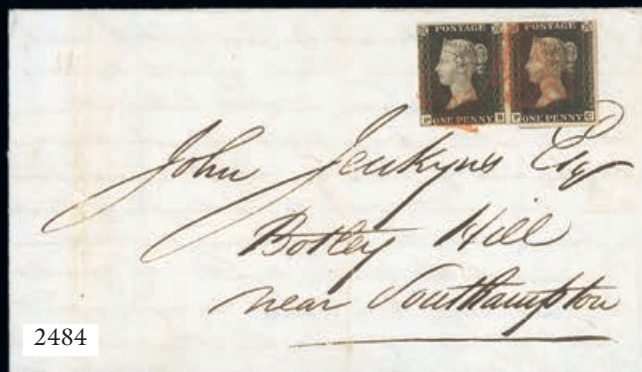 POSTAGE POSTAGE
ONE PENNY ONE PENNY
John Jenkyns Esq
Botley Hill
near Southampton
2484